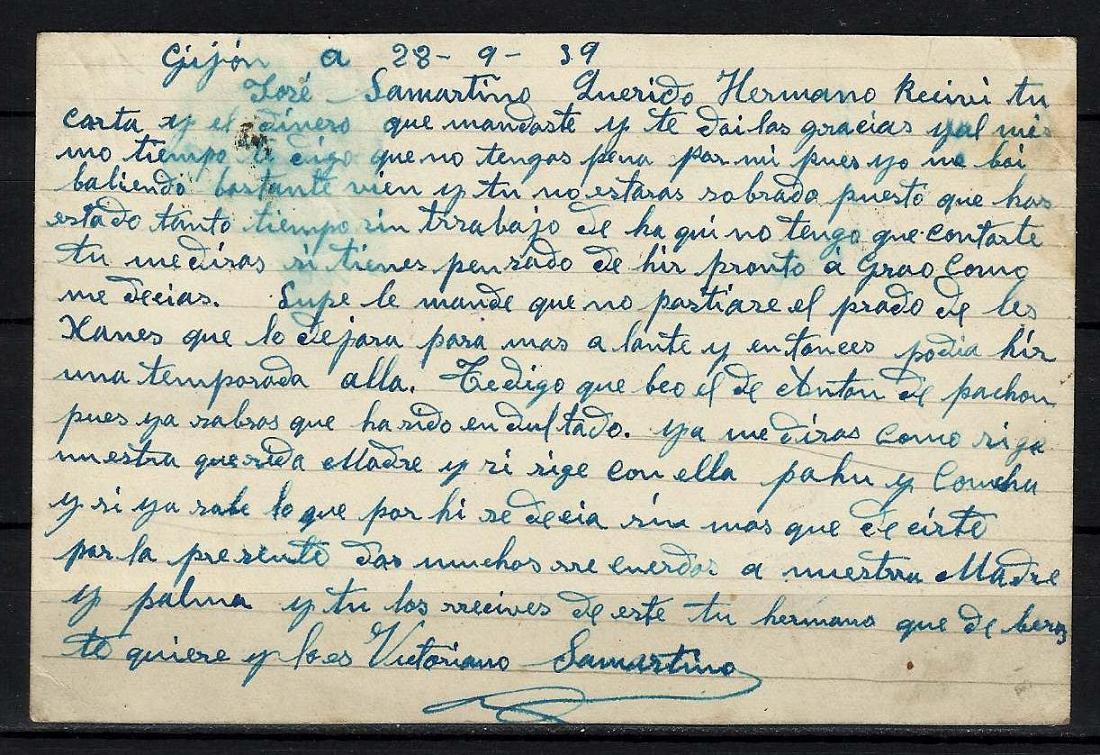 Gijón a 28-9-39
José Samartino Querido Hermano Recivi tu
carta y el dinero que mandaste y te doi las gracias y al mis
mo tiempo te digo que no tengas pena por mi pues yo me boi
baliendo bastante vien y tu no estaras sobrado puesto que has
estado tanto tiempo sin trrabajo de ha qui no tengo que contarte
tu me diras si tienes pensado de hir pronto á Grao Como
me decias. Supe le mande que no partiare el prado de les
Xanes que lo dejara para mas a lante y entonces podia hir
una temporada alla. Te digo que beo el de Anton de pachon
pues ya sabras que ha sido endultado. ya me diras como sige
nuestra querida Madre y si sige con ella y Concha
y si ya sabe lo que por hi se decia sin mas que decirte
por la presente das muchos rre cuerdos a nuestrra Madre
y palma y tu los rrecives de este tu hermano que de beras
te quiere y lo es Victoriano Samartino